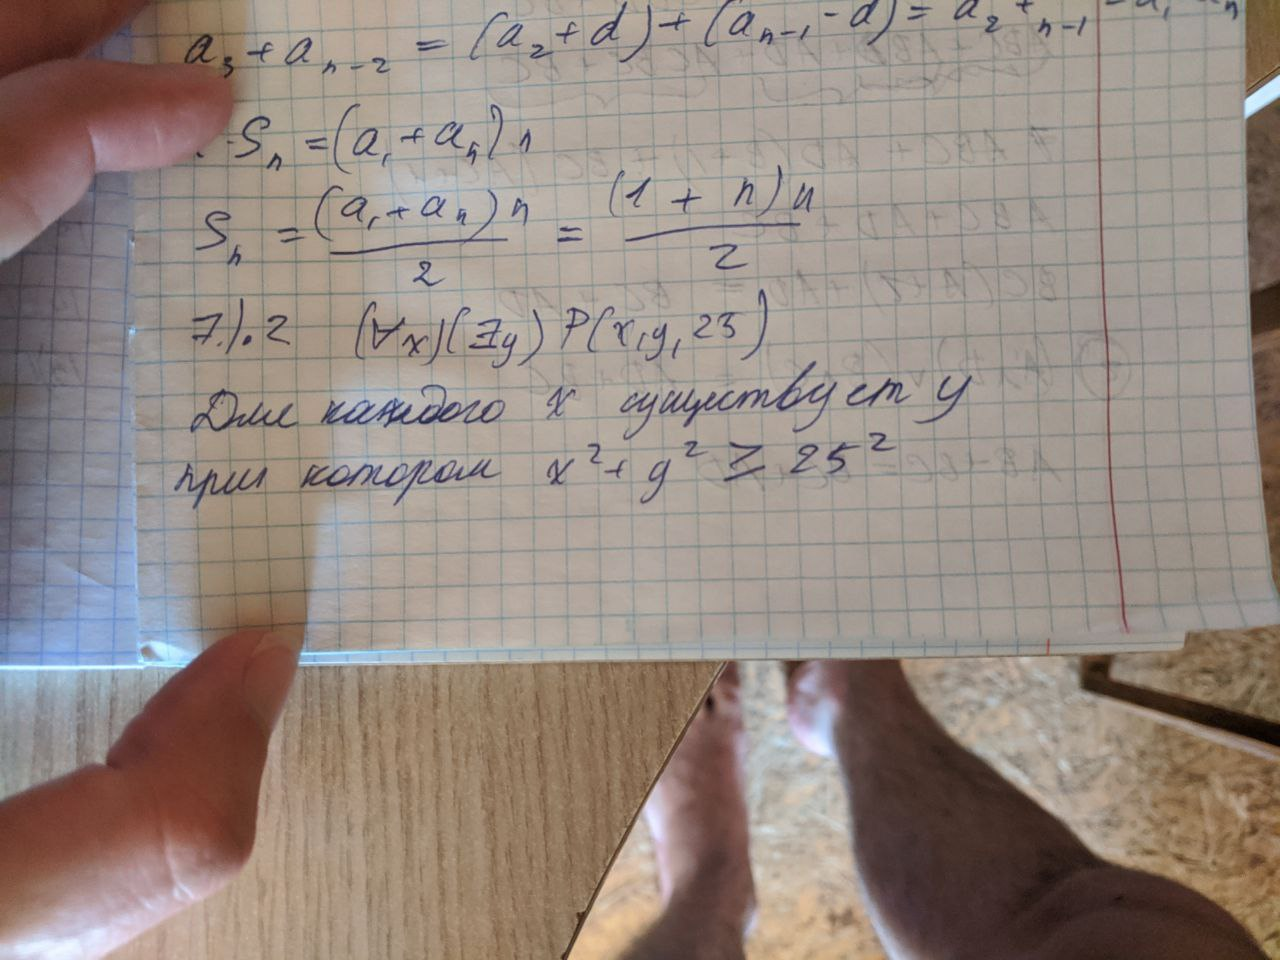 a₃ + aₙ₋₂ = (a₂ + d) + (aₙ₋₁ - d) = a₂ + ₙ₋₁ = a₁ aₙ
Sₙ = (a₁ + aₙ) n
Sₙ = (a₁ + aₙ) n / 2 = (1 + n) n / 2
7.).2 (∀x)(∃y) P(x, y, 25)
Для каждого x существует y
при котором x² + y² ≥ 25²